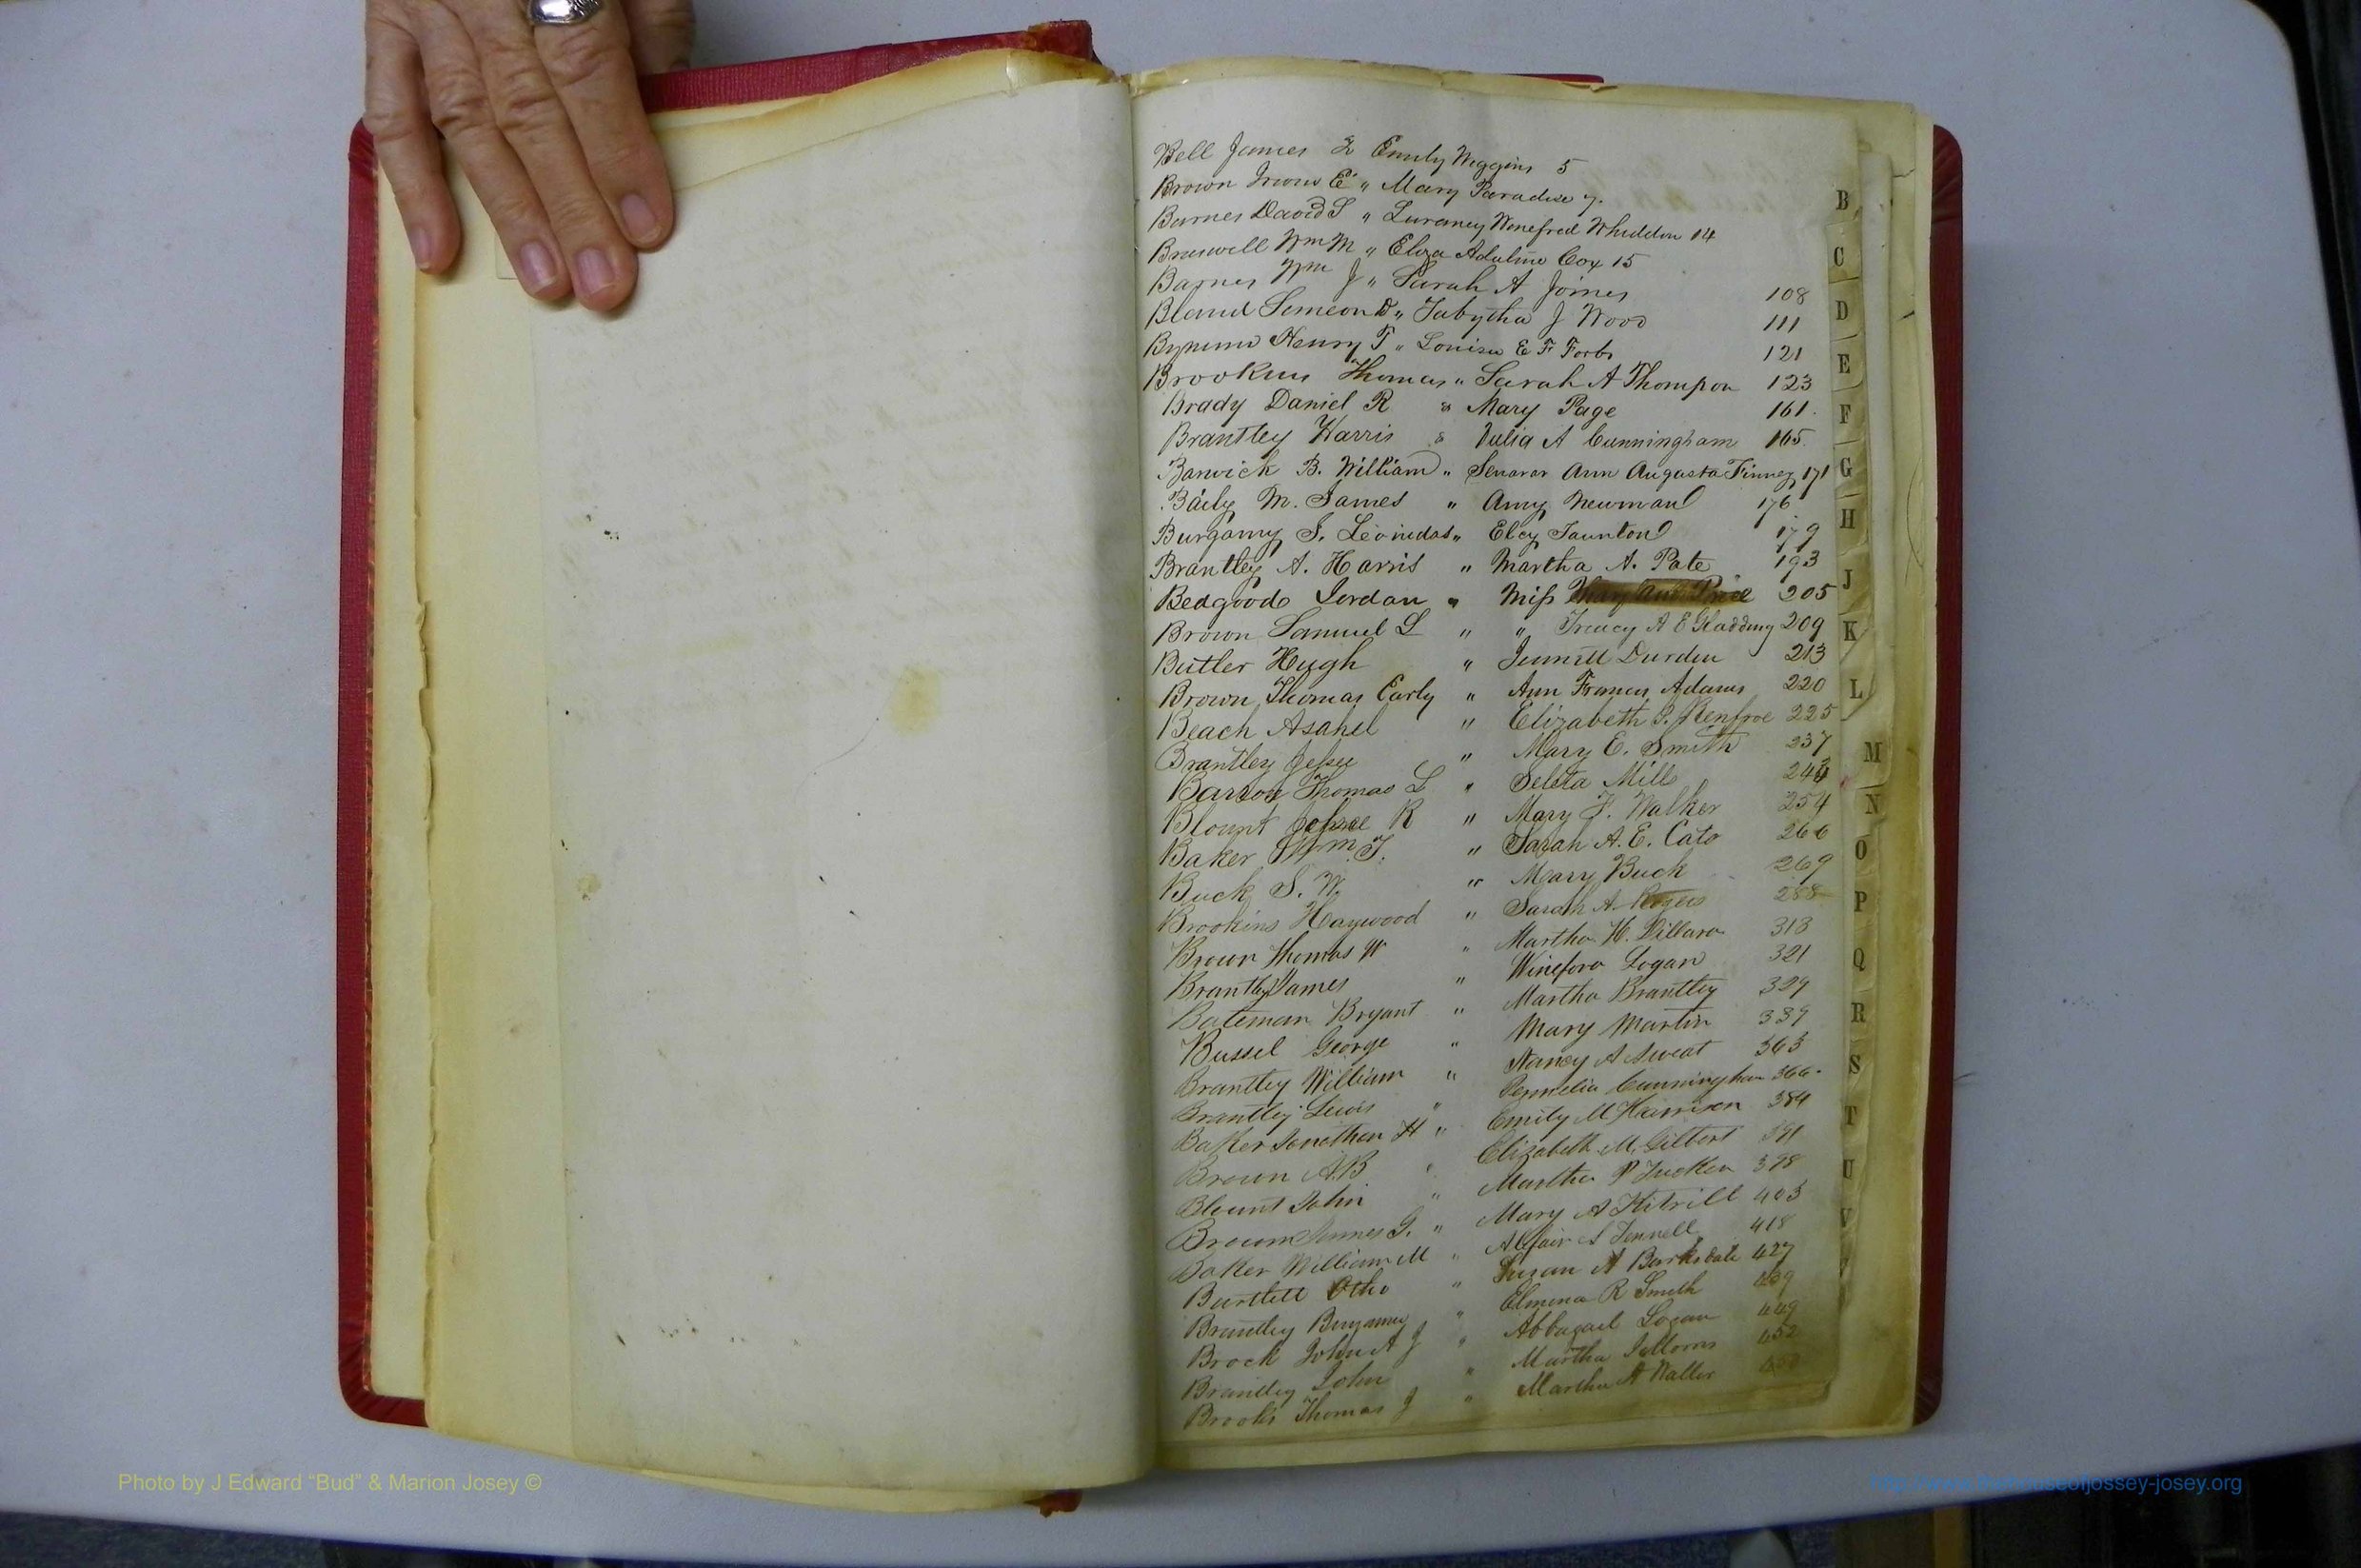 Bell James & Emily Wiggins 5
Brown E " Mary Paradise 7.
Barnes David S " Luraney Wenefred Whiddon 14
Braswell Wm M " Eliza Adaline Cox 15
Barnes Wm J " Sarah A Joines 108
Bland Simeon D " Tabytha J Wood 111
Bynum Henry T " Louisa E F Forbs 121
Brookins Thomas " Sarah A Thompson 123
Brady Daniel R & Mary Page 161.
Brantley Harris & Julia A Cunningham 165.
Barwick B. William " Ann Augusta Finney 171
Baily M. James " Amy Newman 176
Burgamy S. Leonidas " Elcy Taunton 179
Brantley A. Harris " Martha A. Pate 193
Bedgood Jordan " Miss Mary Ann Price 205
Brown Samuel L " " A E Gladding 209
Butler Hugh " Durden 213
Brown Thomas Early " Ann Frances Adams 220
Beach Asahel " Elizabeth S. Renfroe 225
Brantley Jesse " Mary E. Smith 237
Barron Thomas L " Seleta Mills
Blount R " Mary F. Walker 254
Baker Wm. T. " Sarah A. E. Cato 266
Buck S. W. " Mary Buck 269
Brookins Haywood " Sarah A. Rogers 288
Brown Thomas W " Martha H. Dillard 313
Brantley James " Wineford Logan 321
Bateman Bryant " Martha Brantley 329
Bussel George " Mary Martin 339
Brantley William " Nancy A Sweat 363
Brantley Lewis " Cunningham 366.
Baker Jonathan H " Emily M Harrison 384
Brown A. B " Elizabeth M. Gilbert 391
Blount John " Martha P Tucker 398
Brown James G. " Mary A Kitrill 403
Baker William M " S Fennell 418
Bartlett Otho " Susan A Barksdale 427
Brantley Benjamin " Elmina R Smith 439
Brock John A J " Abbagail Logan 449
Brantley John " Martha J Morris 452
Brooks Thomas J " Martha A Waller
B
C
D
E
F
G
H
J
K
L
M
N
O
P
Q
R
S
T
U
V
Photo by J Edward “Bud” & Marion Josey ©
http://www.thehouseofjossey-josey.org